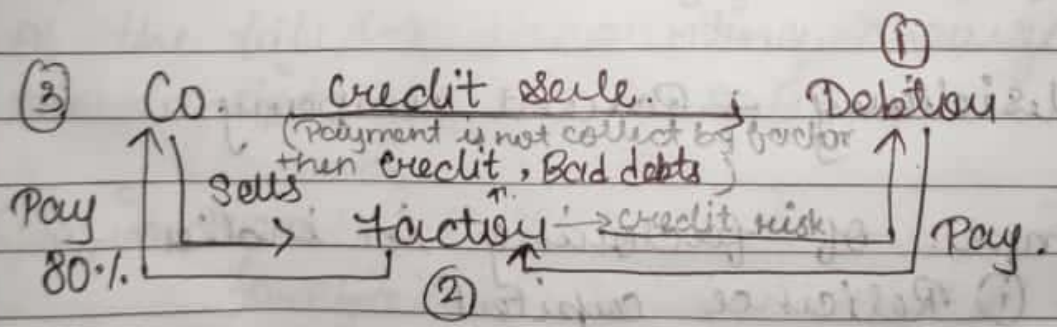 ①
③ Co. Credit sale. Debtor
(Payment is not collect by factor
then credit, Bad debts)
Sells
Pay Factor → credit risk Pay.
80%
②